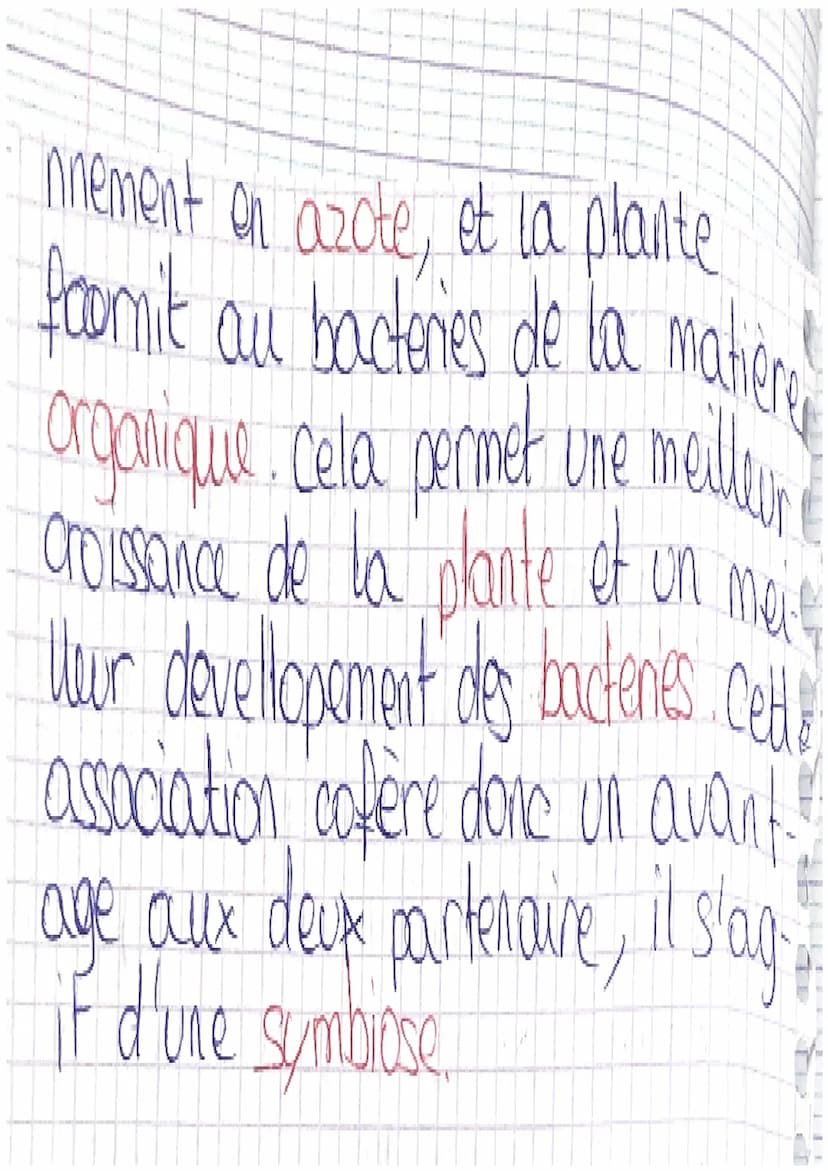 nnement en azote, et la plante
fournit au bacteries de la matière
organique. Cela permet une meilleur
croissance de la plante et un mei-
lleur devellopement des bacteries. Cette
association cofère donc un avant-
age aux deux partenaire, il s'ag-
it d'une symbiose.